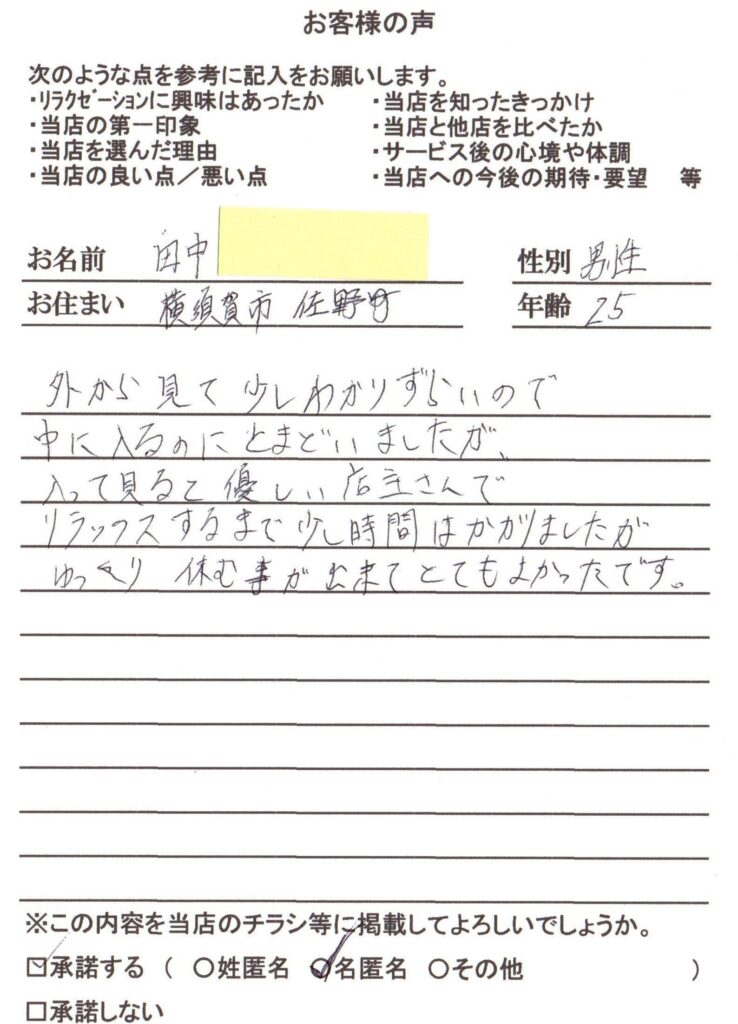 お客様の声
次のような点を参考に記入をお願いします。
・リラクゼーションに興味はあったか ・当店を知ったきっかけ
・当店の第一印象 ・当店と他店を比べたか
・当店を選んだ理由 ・サービス後の心境や体調
・当店の良い点／悪い点 ・当店への今後の期待・要望 等
お名前 田中 性別 男性
お住まい 横須賀市 佐野町 年齢 25
外から見て少しわかりずらいので
中に入るのにとまどいましたが、
入って見ると優しい店主さんで
リラックスするまで少し時間はかかりましたが
ゆっくり 休む事が出来てとてもよかったです。
※この内容を当店のチラシ等に掲載してよろしいでしょうか。
☑承諾する （ ○姓匿名 ○名匿名 ○その他 ）
□承諾しない